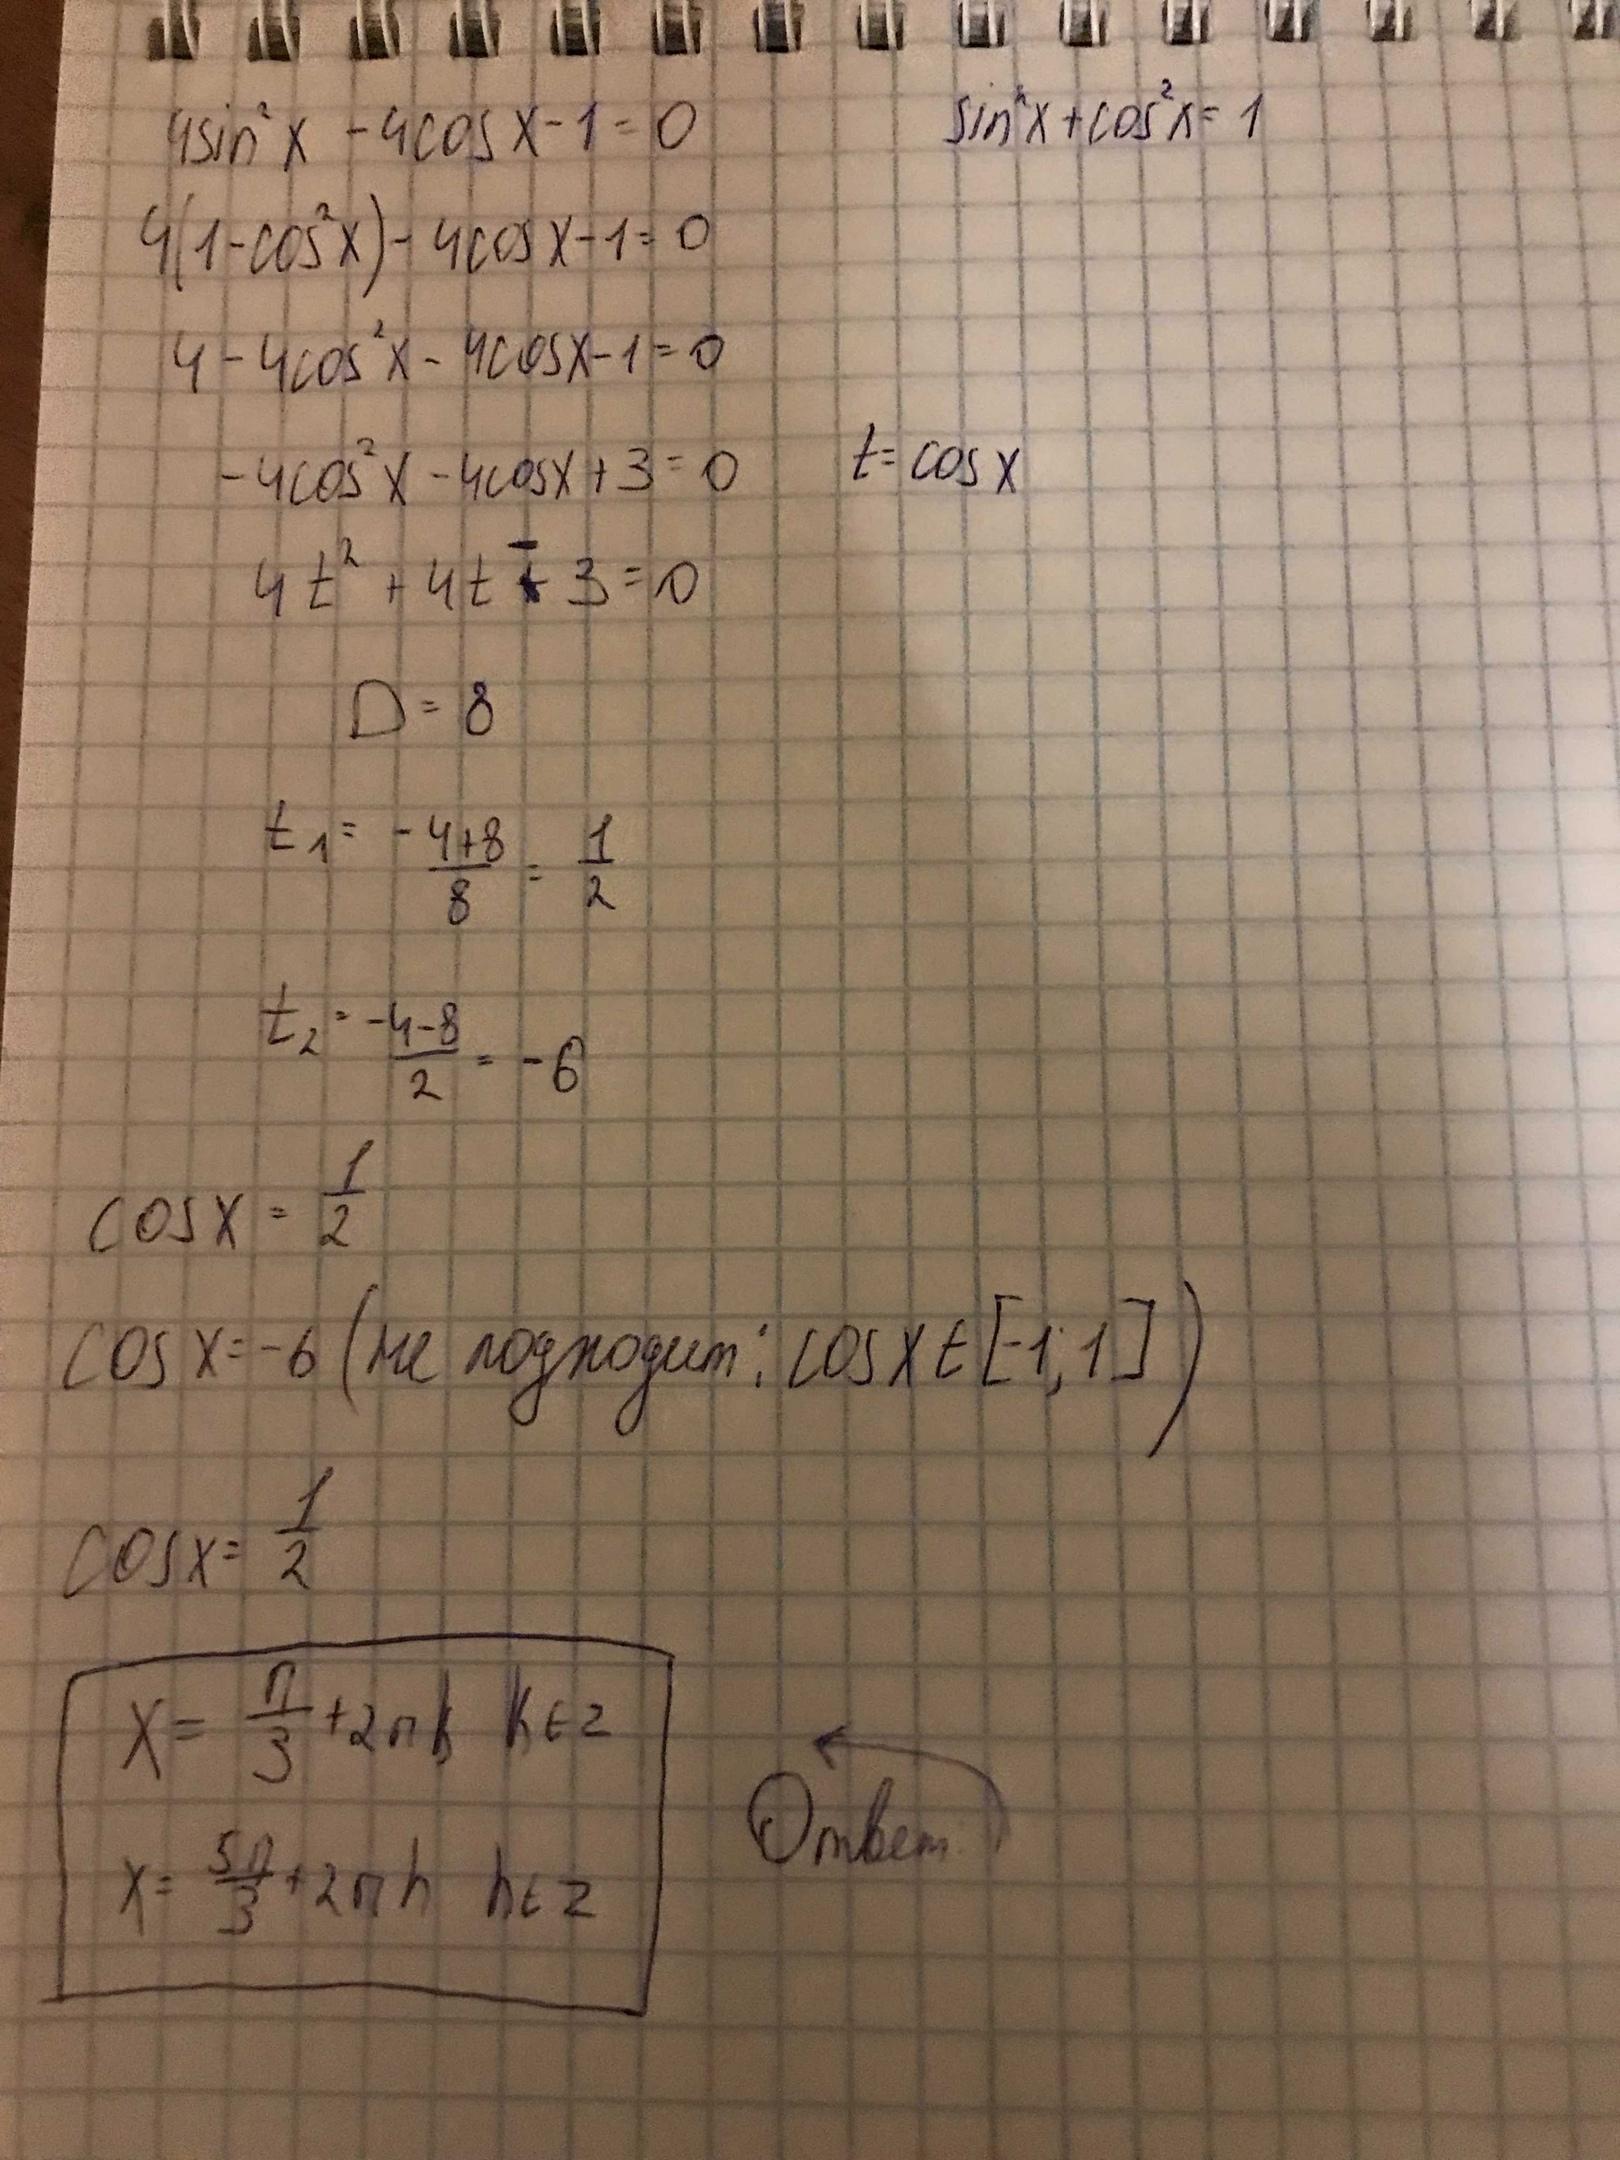 4sin²x - 4cosx - 1 = 0
sin²x + cos²x = 1
4(1 - cos²x) - 4cosx - 1 = 0
4 - 4cos²x - 4cosx - 1 = 0
-4cos²x - 4cosx + 3 = 0
t = cosx
4t² + 4t - 3 = 0
D = 8
t₁ = -4+8/8 = 1/2
t₂ = -4-8/2 = -6
cosx = 1/2
cosx = -6 (не подходит: cosx ∈ [-1; 1])
cosx = 1/2
x = π/3 + 2πk k ∈ z
Ответ
x = 5π/3 + 2πn n ∈ z